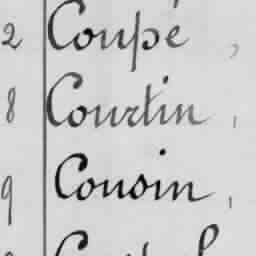 2 Coupé,
8 Courtin,
9 Cousin,